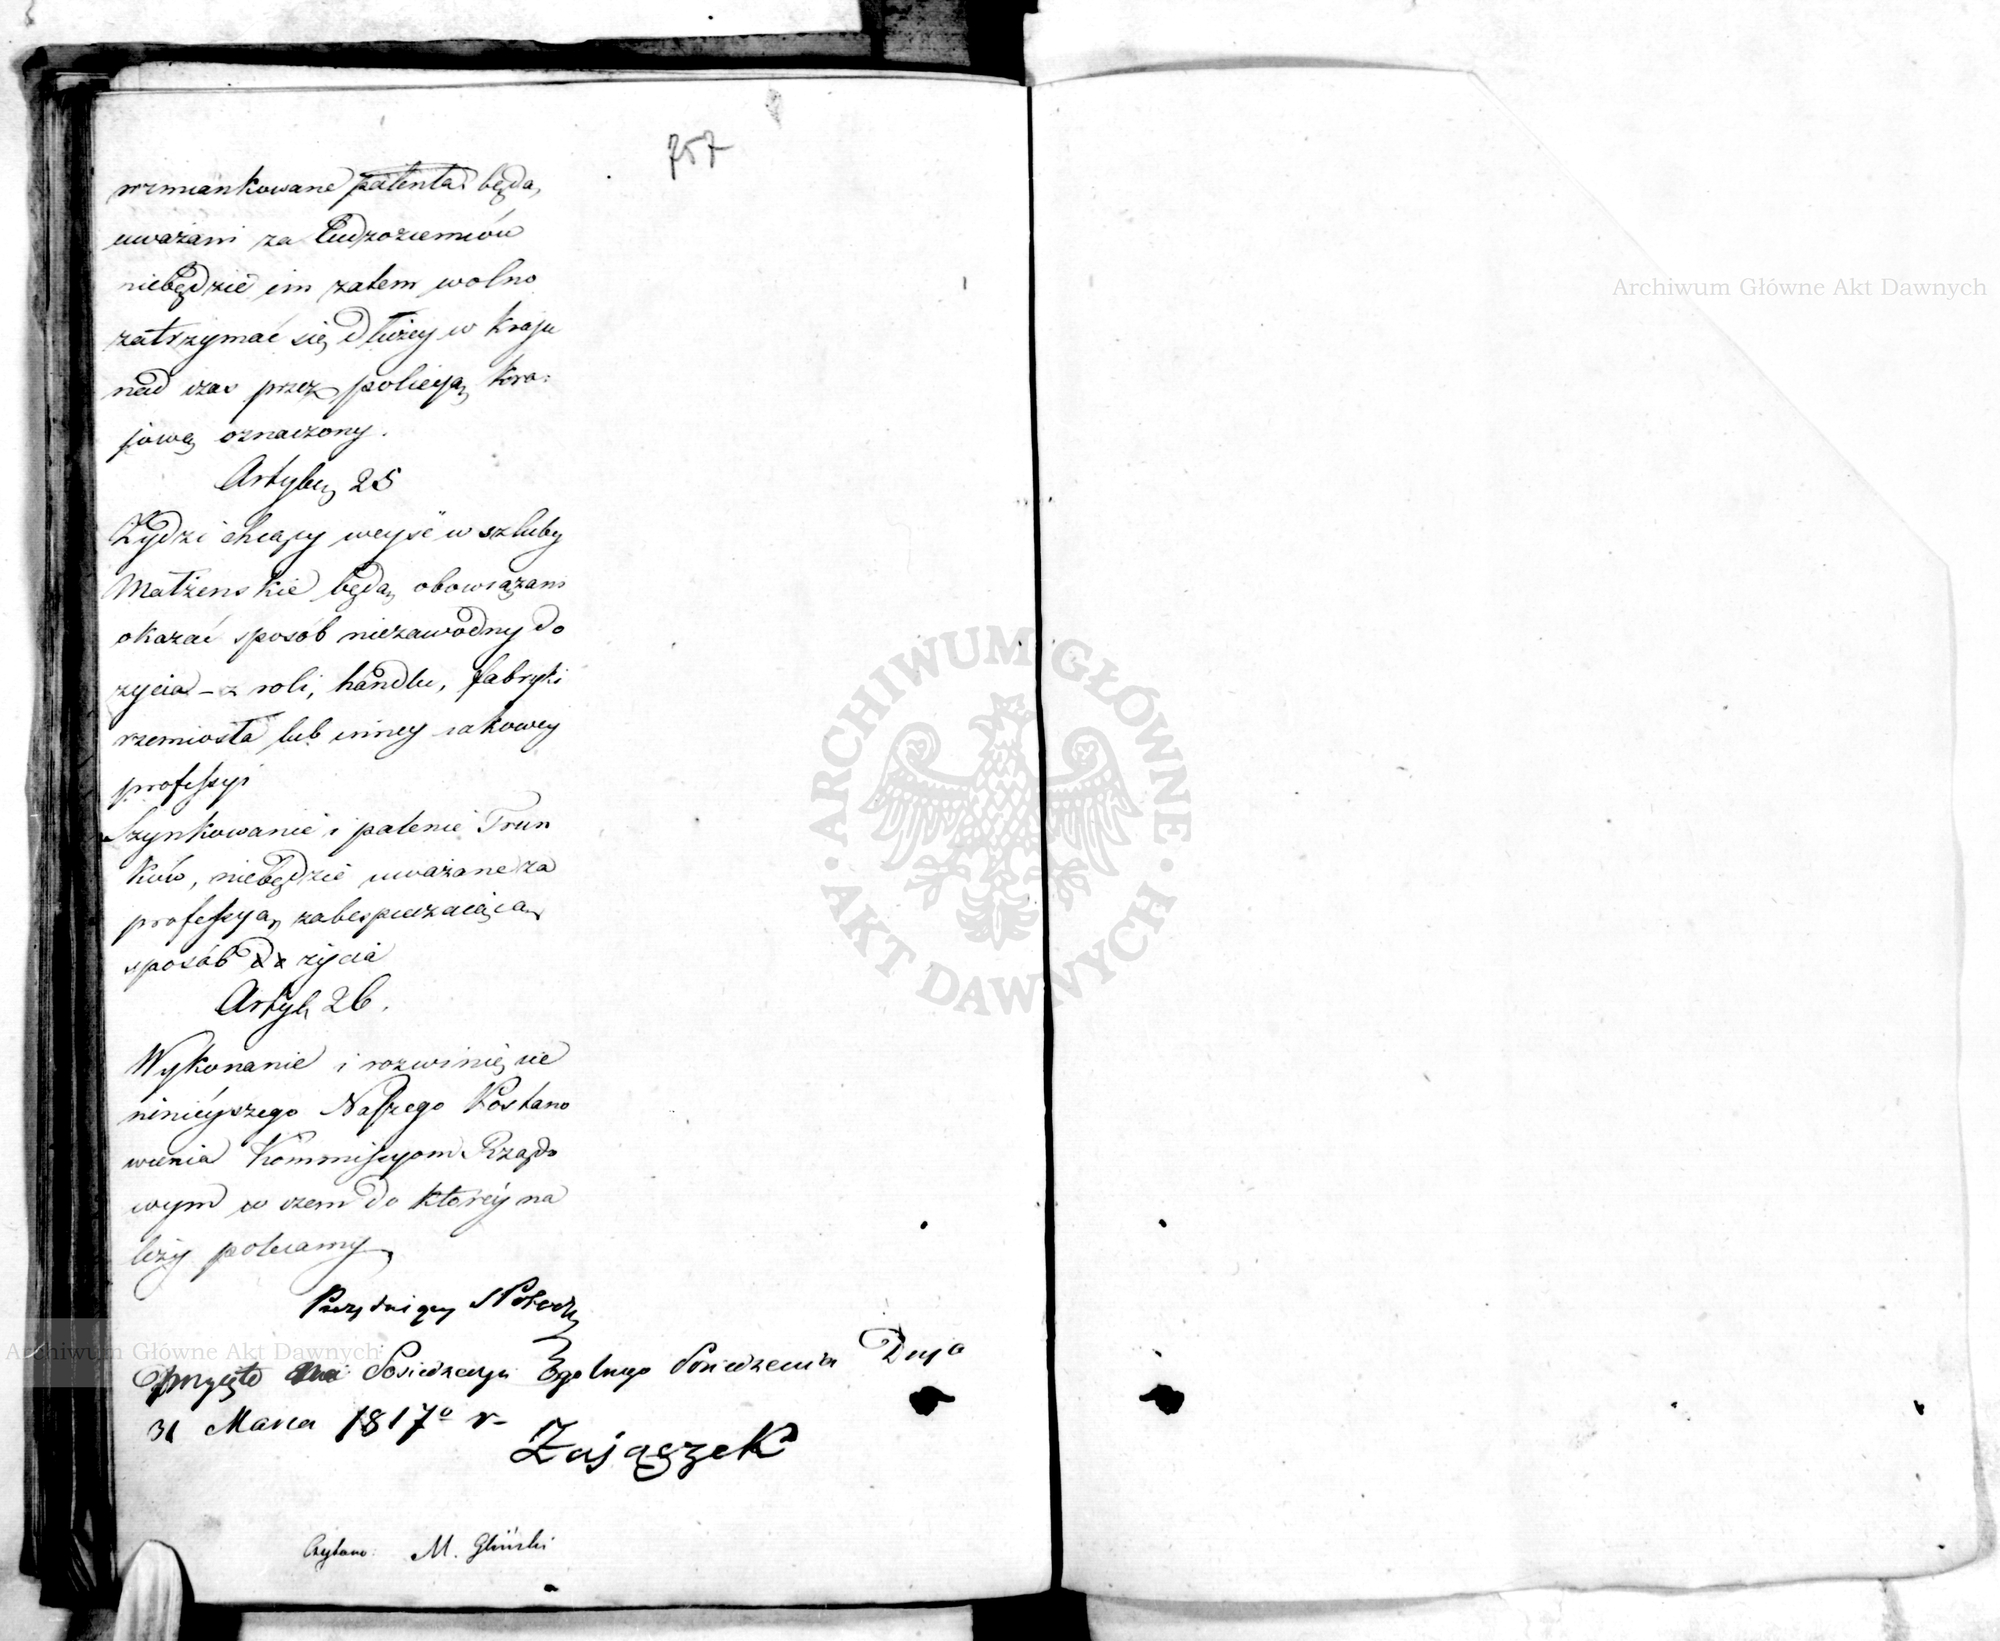 757
wzmiankowane patenta będą
uważani za Cudzoziemców
niebędzie im zatem wolno
zatrzymać się dłużey w kraju
nad czas przez policyą kra:
jową oznaczony.
Artykuł 25
Żydzi chcący weyść w szluby
Małżenskie będą obowiązani
okazać sposób niezawodny do
zycia – z roli, handlu, fabryki
rzemiosła lub inney iakowey
professyi
Szynkowanie i palenie Trun
ków, niebędzie uważane za
professyą zabespieczaiącą
sposób do życia
Artyk 26.
Wykonanie i rozwinięcie
ninieyszego Naszego Postano
wienia Kommissyom Rządo
wym w czem do którey na
leży polecamy
przyięto na Posiedzeniu Dnia
31 Marca 1817º r-
Zajączek
Czytano: M. Gliński
Archiwum Główne Akt Dawnych
ARCHIWUM GŁÓWNE
AKT DAWNYCH
Archiwum Główne Akt Dawnych